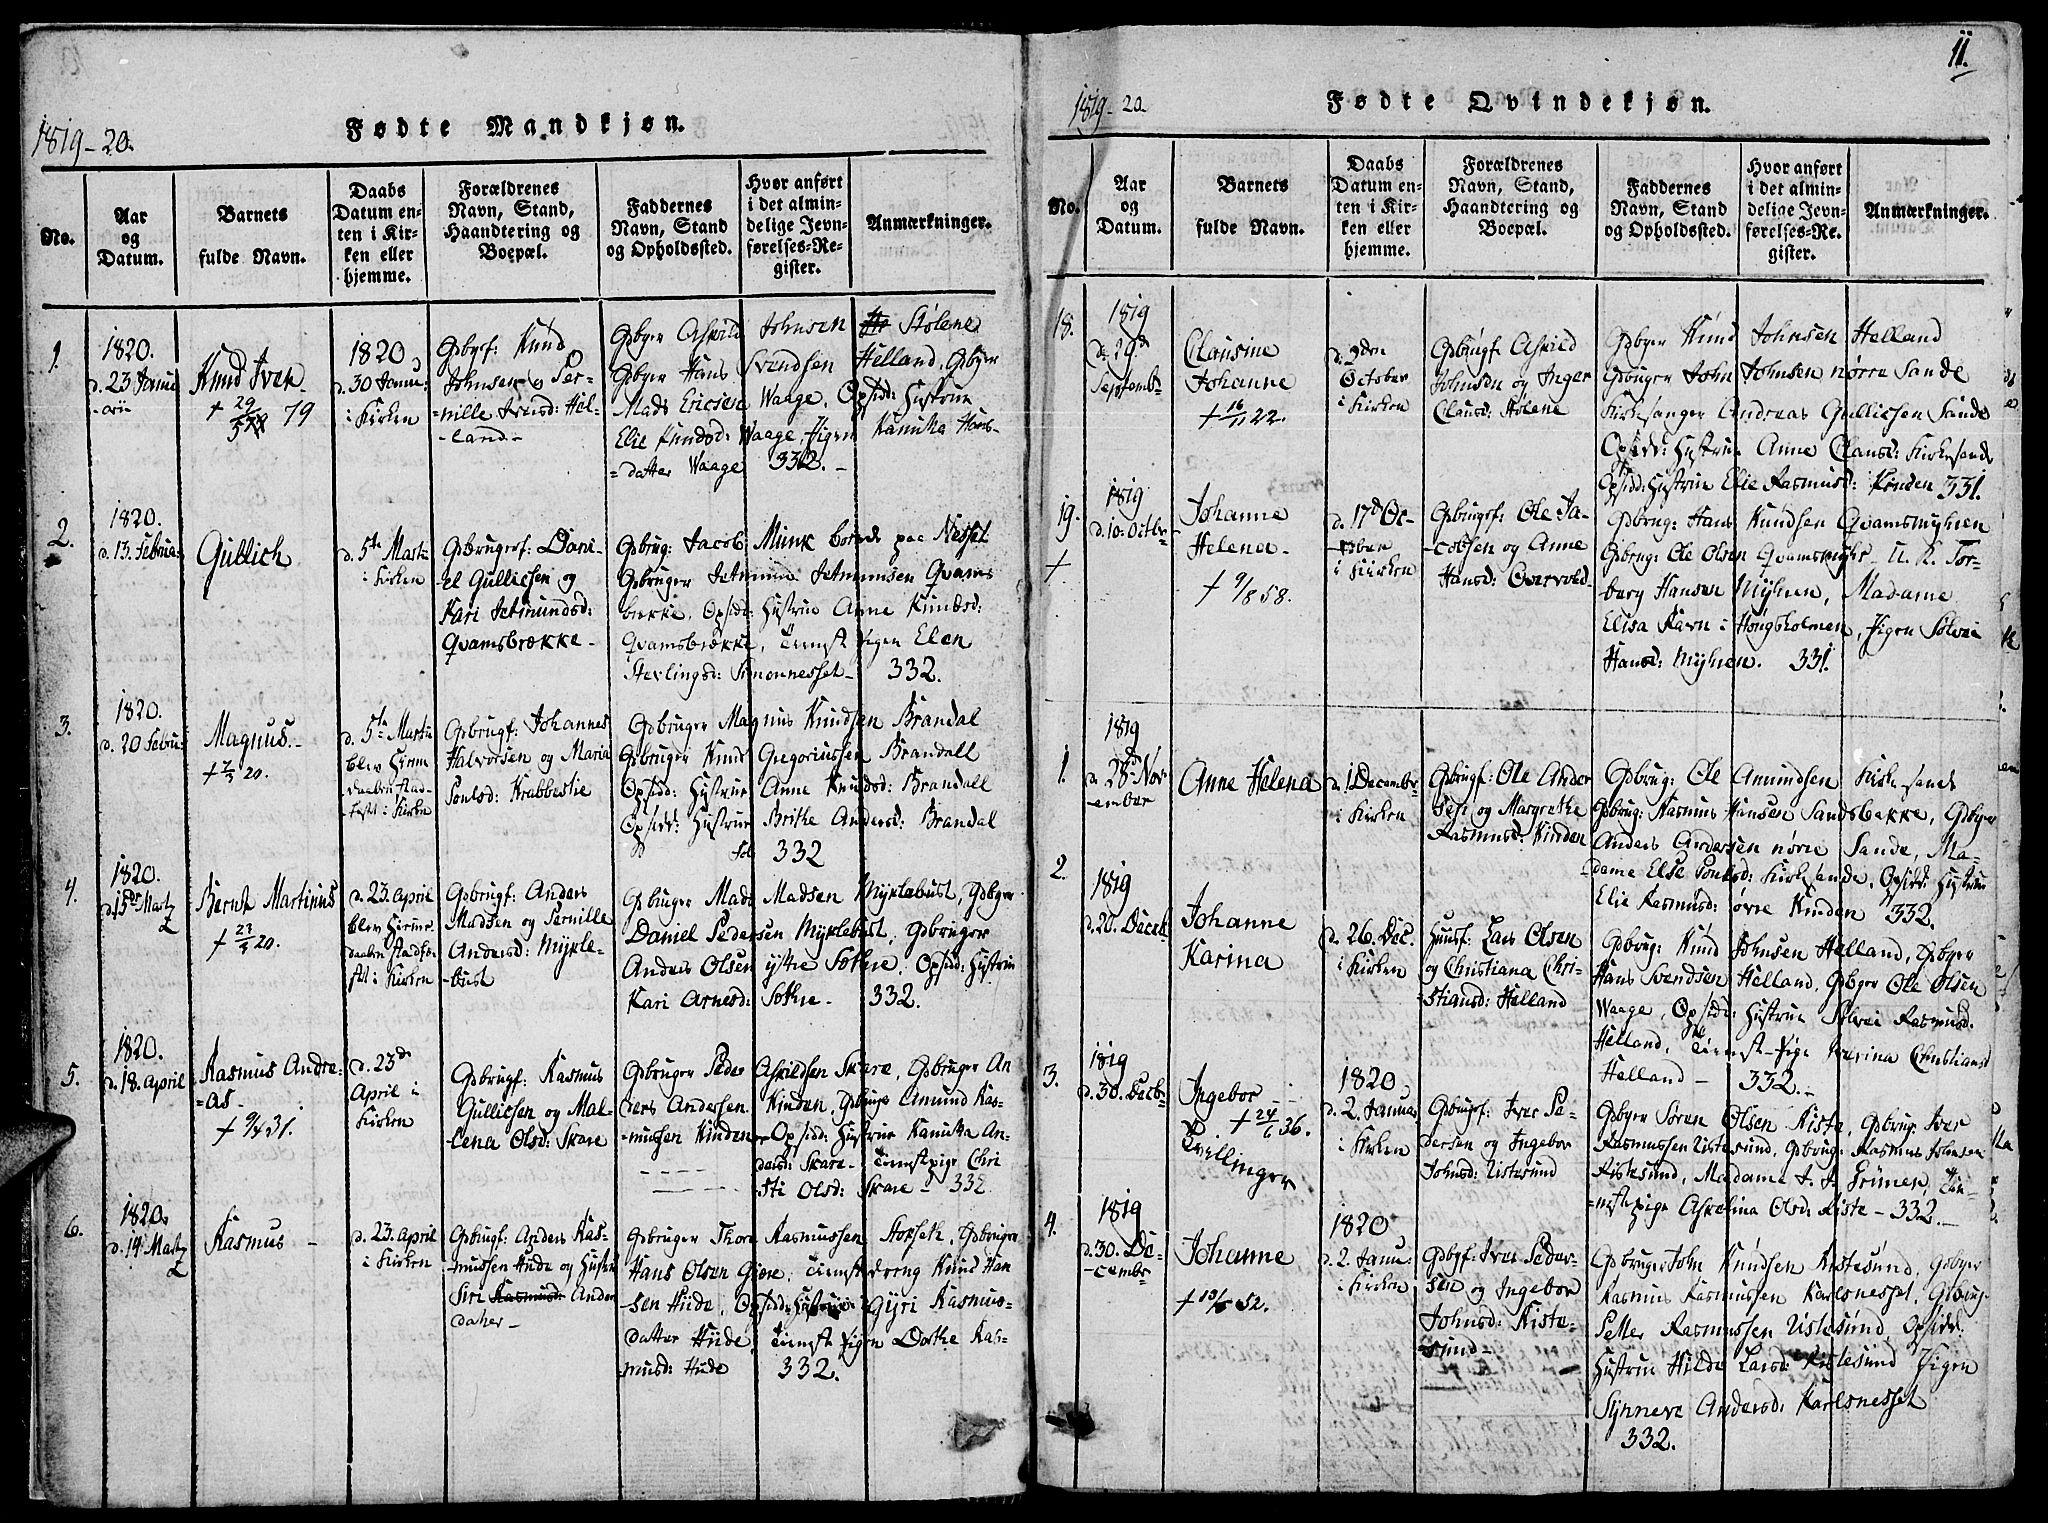 1819-20.
Fødte Mandkjøn.
No.
Aar
og
Datum.
Barnets
fulde Navn.
Daabs
Datum en-
ten i Kir-
ken eller
hjemme.
Forældrenes
Navn, Stand,
Haandtering og
Boepæl.
Faddernes
Navn, Stand
og Opholdssted.
Hvor anført
i det almin-
delige Jevn-
førelses-Re-
gister.
Anmærkninger.
1.
1820.
d. 23 Janu-
arii
Knud Iver
+ 29/5 79
1820
d. 30 Janu:
i Kirken
Gbgf: Knud
Johnsen og Per-
nille Iversd: Hel-
land
Gbger Askild Johnsen Stølene
Gbger Hans Svendsen Helland, Gbger
Mads Ericsen Waage, Opsidd: Hustrue
Elie Knudsd: Waage, Pigen Kanutta Hans-
datter Waage 332.
2.
1820.
d. 13. Februa:
Gullich
d. 5te Marti
i Kirken
Gbrugrf: Dani-
el Gullicsen og
Kari Jetmundsd:
Qvamsbrække
Gbrug: Jacob Munk boende paa Nesset
Gbruger Jetmund Jetmundsen Qvams
brække, Opsidd: Hustrue Anne Knudsd:
Qvamsbrække, Tienst Pigen Elen
Sterlingsd: Simonnesset 332.
3.
1820.
d. 20 Febru:
Magnus
+ 7/3 20.
d. 5te Martii
blev Hiem
daaben stad-
fæst i Kirken
Gbrugf: Johannes
Halvorsen og Maria
Poulsd: Krabbestie
Gbruger Magnus Knudsen Brandal
Gbruger Knud Gregoriussen Brandall
Opsidd: Hustrue Anne Knudsd: Brandall
Opsidd: Hustrue Brithe Andersd: Brandal
332
4.
1820.
d. 15de Martz
Bernt Martinus
+ 23/5 20.
d. 23. April
blev Hieme
daaben stadfæ-
stet i Kirken
Gbrugf: Anders
Madsen og Pernille
Andersd: Mykle-
bust
Gbruger Mads Madsen Myklebust, Gbger
Daniel Pedersen Myklebust, Gbruger
Anders Olsen ystre Søthre, Opsidd: Hustrue
Kari Arnesd: Søthre 332.
5.
1820.
d. 18. April
Rasmus Andre-
as
+ 9/4 31.
d. 23de
April i
Kirken
Gbrugf: Rasmus
Gullicsen og Mal-
lena Olsd: Skare
Gbruger Peder Askildsen Skare, Gbruger An
ders Andersen Kinden, Gbruge Amund Ras-
mussen Kinden Opsidd: Hustrue Kanutta An-
dersd: Skare Tienstpige Chri
sti Olsd: Skare 332
6.
1820.
d. 14 Martz
Rasmus
d. 23. April
i Kirken
Gbrugf: Anders Ras-
mussen Hide og Hustr
Siri Rasmusd: Anders
datter
Gbruger Thore Rasmussen Storseth, Gbruger
Hans Olsen Gjøre, Tienst dreng Knud Han
sen Hide, Opsidd: Hustrue Gyri Rasmus-
datter Hide, Tienst Pigen Dorthe Ras-
musd: Hide 332.
11.
1819-20.
Fødte Qvindekjøn.
No.
Aar
og
Datum.
Barnets
fulde Navn.
Daabs
Datum en-
ten i Kir-
ken eller
hjemme.
Forældrenes
Navn, Stand,
Haandtering og
Boepæl.
Faddernes
Navn, Stand
og Opholdssted.
Hvor anført
i det almin-
delige Jevn-
førelses-Re-
gister.
Anmærkninger.
18.
1819
d. 29de
Septembr
Clausine
Johanne
+ 16/11 22.
d. 9den
October
i Kirken
Gbrugf: Askild
Johnsen og Inger
Clausd: Stølene
Gbger Knud Johnsen Helland
Gbruger John Johnsen nørre Sande
Kirkesanger Andreas Gullichsen Sande
Opsidd: Hustrue Anne Clausd: Kirkesande
Opsidd: Hustrue Elie Rasmusd: Kinden 331.
19.
+
1819
d. 10. Octbr
Johanne
Helena
+ 9/8 58.
d. 17de Oc-
tober
i Kirken
Gbrugf: Ole Ja-
cobsen og Anne
Hansd: Overvold
Gbrug: Hans Knudsen Qvamsmyhren
Gbrug: Ole Olsen Qvamsmyhr U. K. Tor-
berg Hansen Myhren, Madame
Elisa Ravn i Hougsholmen, Pigen Sølvei
Hansd: Myhren. 331.
1.
1819
d. 28de Nov
ember
Anne Helena
d. 1 Decembr
i Kirken
Gbrugf: Ole Ander
sen og Margrethe
Rasmusd: Kinden
Gbrug: Ole Amundsen Kirkesande
Gbrug: Rasmus Hansen Sandsbække, Gbger
Anders Andersen nørre Sande, Ma-
dame Else Poulsd: Kirkesande, Opsidd: Hustrue
Elie Rasmusd: øvre Kinden 332.
2.
1819
d. 20. Decebr
Johanne
Karina
d. 26. Dec.
i Kirken
Huusf: Lars Olsen
og Christiana Chri-
stiansd: Helland
Gbrug: Knud Johnsen Helland, Gbger
Hans Svendsen Helland, Gbger Ole Olsen
Waage, Opsidd: Hustrue Sølvei Rasmusd.
Helland, Tienst-Pige Karina Christiansd
Helland 332.
3.
1819
d. 30. Decbr
Ingebor
+ 24/6 36.
Tvillinger
1820
d. 2. Janua
i Kirken
Gbrugf: Iver Pe-
dersen og Ingebor
Johnsd: Ristesund
Gbger Søren Olsen Riste, Gbrug: Iver
Rasmussen Ristesund, Gbrug: Rasmus Johnsen
Ristesund, Madame J. A. Grimen, Tie-
nestpige Askelina Olsd: Riste 332.
4.
1819
d. 30. De-
cembr
Johanne
+ 13/5 52.
1820
d. 2 Janu:
i Kirken
Gbgf: Iver Peder-
sen og Ingebor
Johnsd: Riste-
sund
Gbruger John Knudsen Ristesund, Gbger
Rasmus Rasmussen Karlsnesset, Gbrug
Petter Rasmussen Ristesund, Opsidd:
Hustrue Hilde Larsd: Ristesund Pigen
Synneve Andersd: Karlsnesset
332.